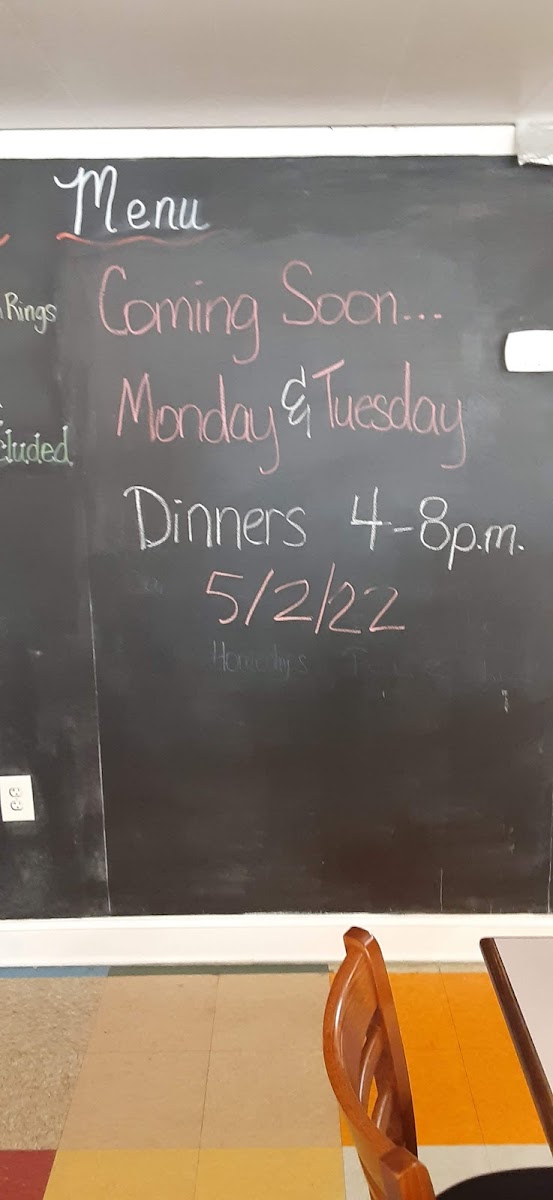 Menu
Rings
cluded
Coming Soon...
Monday & Tuesday
Dinners 4-8p.m.
5/2/22